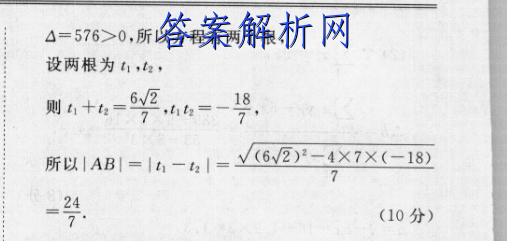 Δ=576>0,所以 程 两 根
答案解析网
设两根为 t₁,t₂,
则 t₁+t₂=6√2/7,t₁t₂=-18/7,
所以|AB|=|t₁-t₂|=√((6√2)²-4×7×(-18))/7
=24/7. (10分)